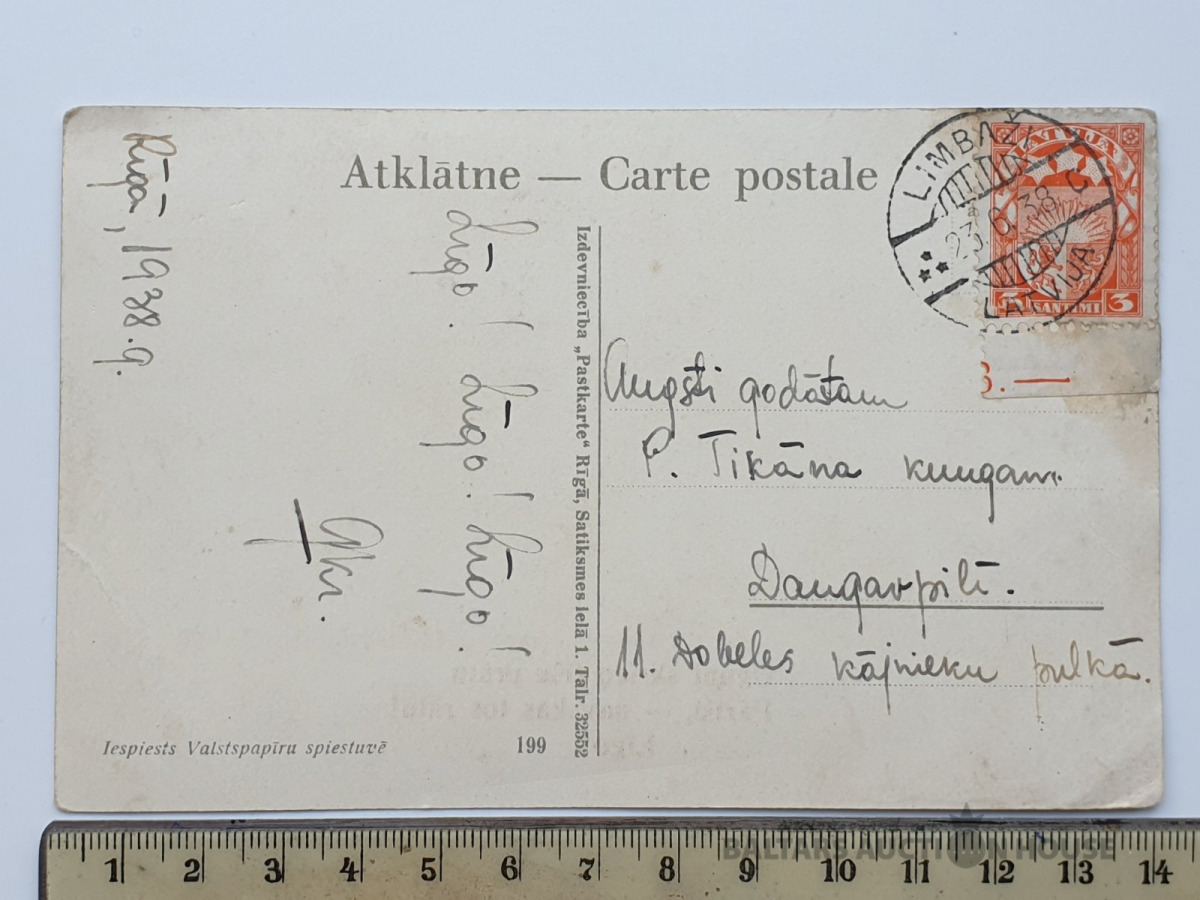 Atklātne — Carte postale
Rīgā, 1938.g.
Līgo! Līgo! Līgo!
Izdevniecība „Pastkarte“ Rīgā, Satiksmes ielā 1. Tālr. 32552
Augsti godātam
P. Tikāna kungam
Daugavpilī.
11. Dobeles kājnieku pulkā.
Iespiests Valstspapīru spiestuvē
199
LIMBAŽI
23.6.38 C
LATVIJA
LATVIJA
3 SANTIMI 3
3.—
1 2 3 4 5 6 7 8 9 10 11 12 13 14
BALTARS AUCTION HOUSE